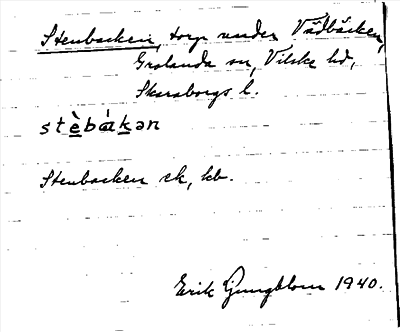 Stenbacken, torp under Vädbäcken,
Grolanda sn, Vilske hd,
Skaraborgs l.
stὲbákən
Stenbacken ek, kb.
Erik Ljungblom 1940.